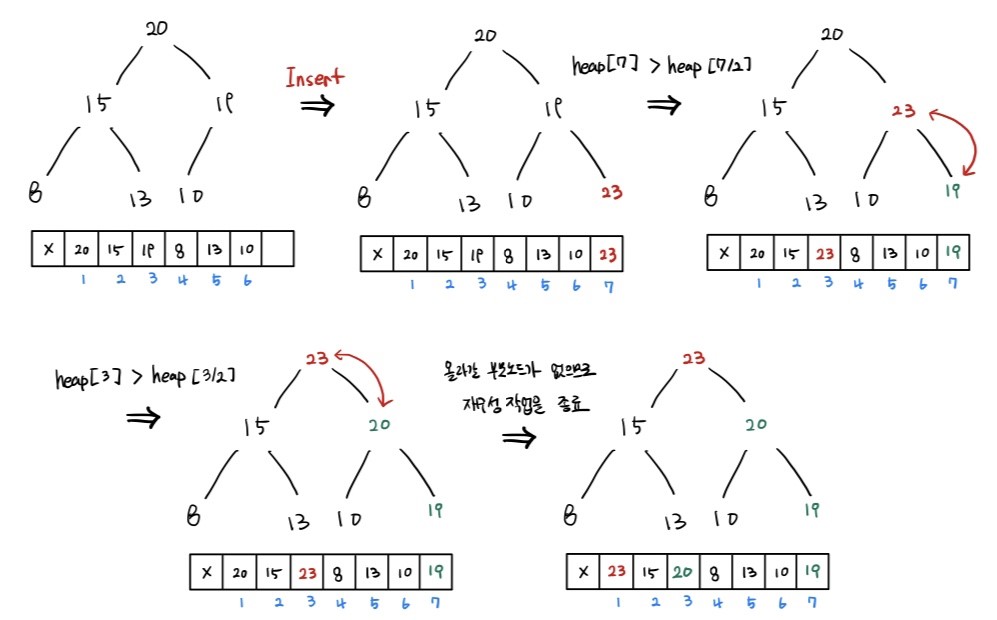 20
15 19
8 13 10
X 20 15 19 8 13 10
1 2 3 4 5 6
Insert
⇒
20
15 19
8 13 10 23
X 20 15 19 8 13 10 23
1 2 3 4 5 6 7
heap[7] > heap [7/2]
⇒
20
15 23
8 13 10 19
X 20 15 23 8 13 10 19
1 2 3 4 5 6 7
heap[3] > heap [3/2]
⇒
23
15 20
8 13 10 19
X 20 15 23 8 13 10 19
1 2 3 4 5 6 7
올라갈 부모노드가 없으므로
재구성 작업을 종료
⇒
23
15 20
8 13 10 19
X 23 15 20 8 13 10 19
1 2 3 4 5 6 7